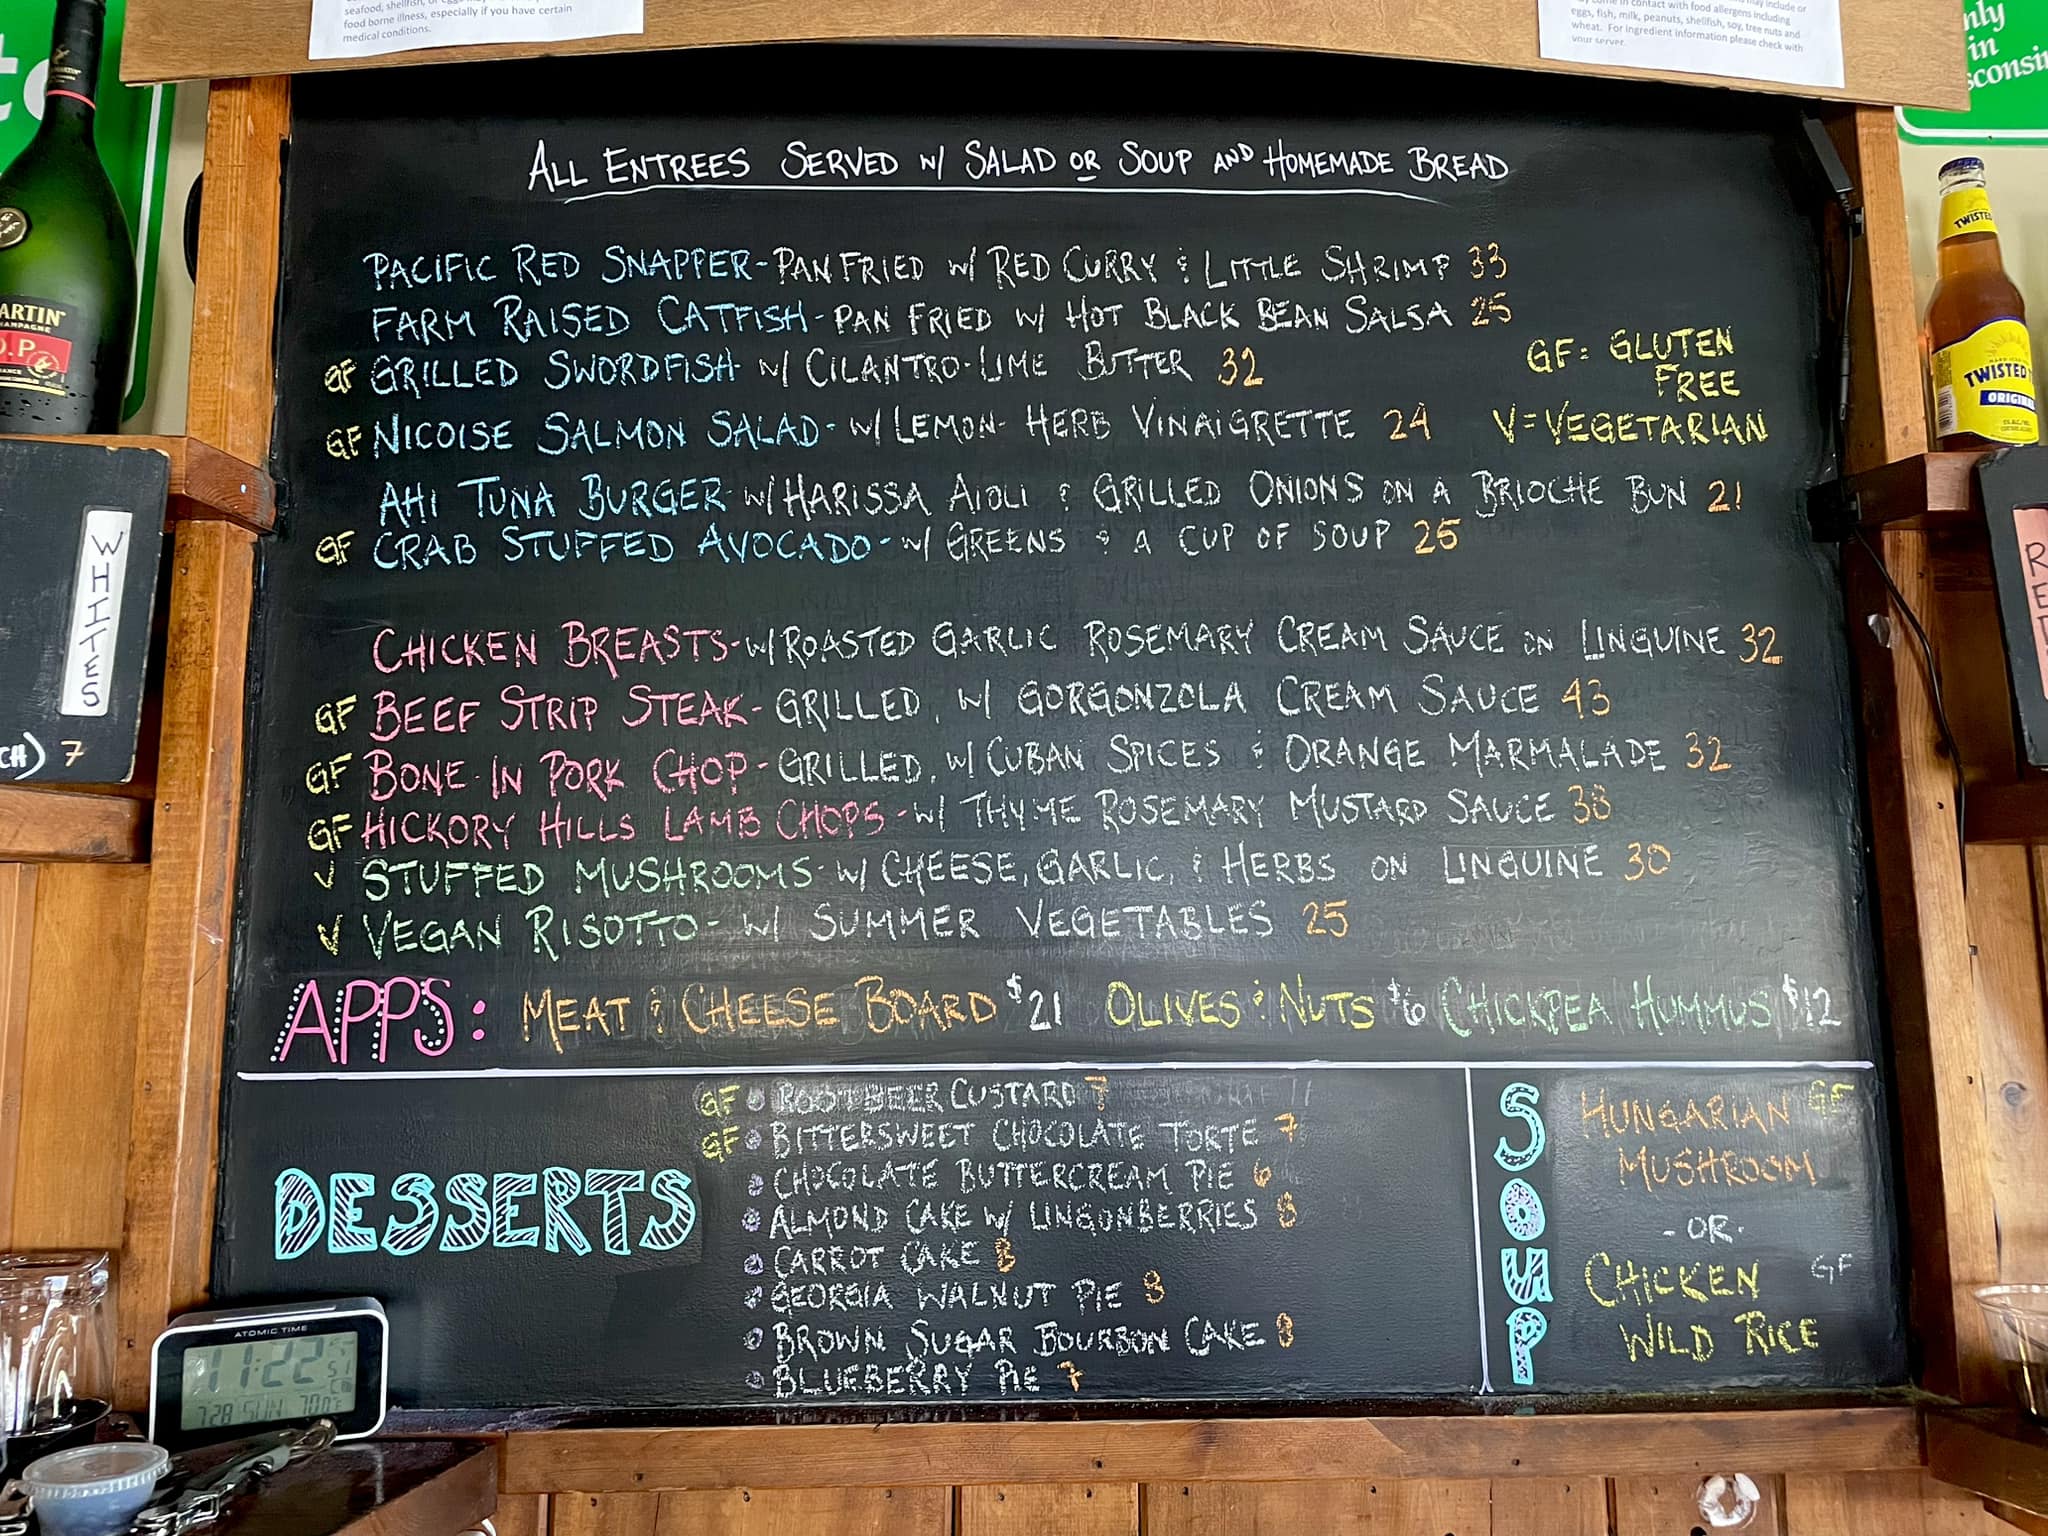 seafood, shellfish, or eggs may
food borne illness, especially if you have certain
medical conditions.
may include or
come in contact with food allergens including
eggs, fish, milk, peanuts, shellfish, soy, tree nuts and
wheat. For ingredient information please check with
your server.
nly
in
sconsin
ALL ENTREES SERVED W/ SALAD OR SOUP AND HOMEMADE BREAD
PACIFIC RED SNAPPER - PAN FRIED W/ RED CURRY & LITTLE SHRIMP 33
FARM RAISED CATFISH - PAN FRIED W/ HOT BLACK BEAN SALSA 25
GF GRILLED SWORDFISH - W/ CILANTRO-LIME BUTTER 32
GF = GLUTEN
FREE
GF NICOISE SALMON SALAD - W/ LEMON-HERB VINAIGRETTE 24
V = VEGETARIAN
AHI TUNA BURGER - W/ HARISSA AIOLI & GRILLED ONIONS ON A BRIOCHE BUN 21
GF CRAB STUFFED AVOCADO - W/ GREENS & A CUP OF SOUP 25
CHICKEN BREASTS - W/ ROASTED GARLIC ROSEMARY CREAM SAUCE ON LINGUINE 32
GF BEEF STRIP STEAK - GRILLED, W/ GORGONZOLA CREAM SAUCE 43
GF BONE-IN PORK CHOP - GRILLED, W/ CUBAN SPICES & ORANGE MARMALADE 32
GF HICKORY HILLS LAMB CHOPS - W/ THYME ROSEMARY MUSTARD SAUCE 38
V STUFFED MUSHROOMS - W/ CHEESE, GARLIC, & HERBS ON LINGUINE 30
V VEGAN RISOTTO - W/ SUMMER VEGETABLES 25
APPS: MEAT & CHEESE BOARD $21 OLIVES & NUTS $6 CHICKPEA HUMMUS $12
DESSERTS
GF ROOTBEER CUSTARD 7
GF BITTERSWEET CHOCOLATE TORTE 7
CHOCOLATE BUTTERCREAM PIE 6
ALMOND CAKE W/ LINGONBERRIES 8
CARROT CAKE 8
GEORGIA WALNUT PIE 8
BROWN SUGAR BOURBON CAKE 8
BLUEBERRY PIE 7
SOUP
HUNGARIAN GF
MUSHROOM
- OR -
CHICKEN GF
WILD RICE
WHITES
CH) 7
RED
ARTIN
CHAMPAGNE
O.P
TWISTED
TWISTED T
ORIGINAL
ATOMIC TIME
11:22 51
7 28 SUN 70.0°F